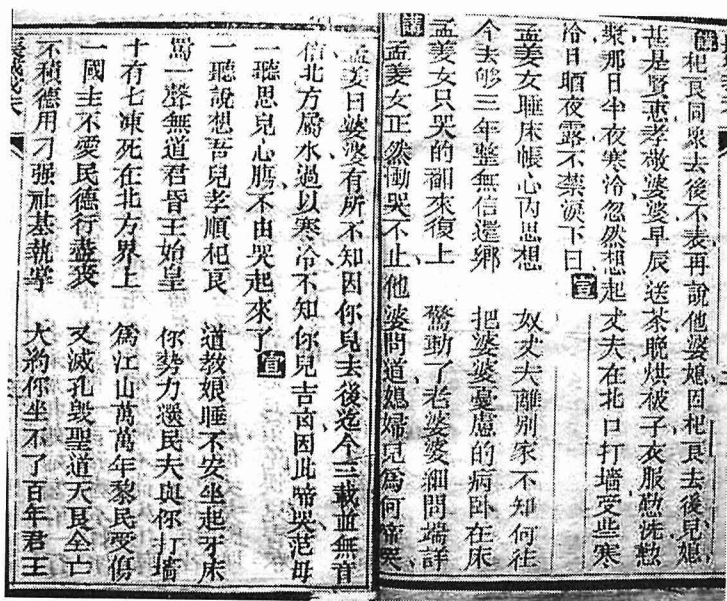 講 杞良同衆去後不表再說他婆媳因杞良去後兒媳
甚是賢惠孝敬婆婆早辰送茶晚烘被子衣服勲洗勲
漿那日半夜寒冷忽然想起丈夫在北口打墻受些寒
冷日晒夜露不禁淚下曰 宣
孟姜女睡床帳心內思想 奴丈夫離別家不知何往
今去够三年整無信還鄉 把婆婆憂慮的病卧在床
孟姜女只哭的翻來復上 驚動了老婆婆細問端詳
講 孟姜女正然慟哭不止他婆問道媳婦兒為何啼哭
孟姜曰婆婆有所不知因你兒去後迄今三載並無音
信北方屬水過以寒冷不知你兒吉凶因此啼哭范母
一聽思兒心膓不由哭起來了 宣
一聽說想吾兒孝順杞良 道教娘睡不安坐起牙床
罵一聲無道君昏王始皇 你勢力選民夫與你打墻
十有七凍死在北方界上 爲江山萬萬年黎民受傷
一國主不愛民德行盡喪 又滅孔毁聖道天良全亡
不積德用刁强祉基執掌 大約你坐不了百年君王
長城